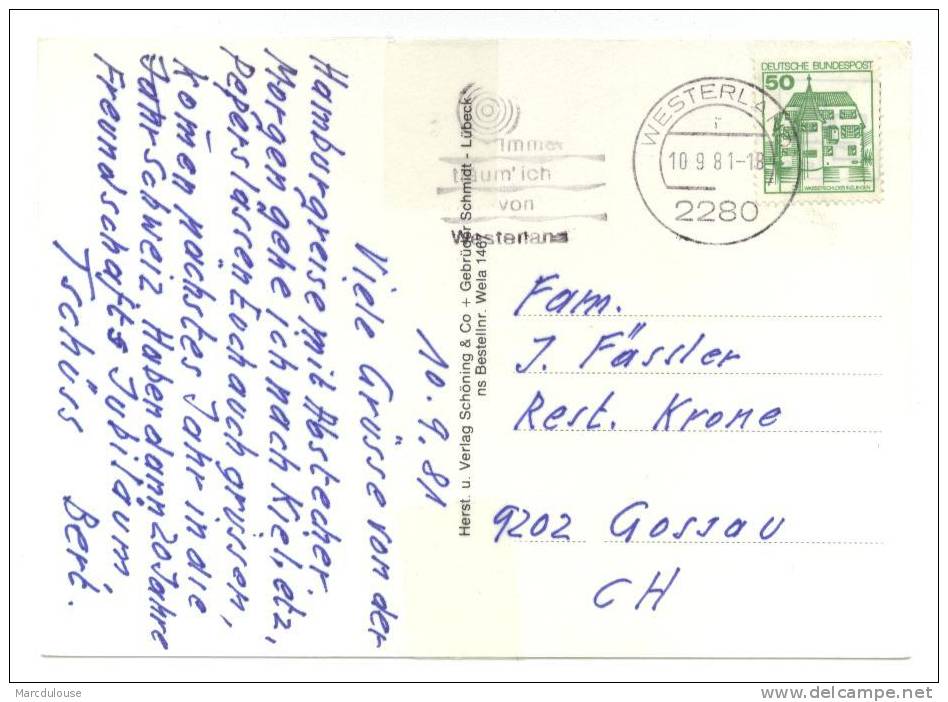 10.9.81
Viele Grüsse von der
Hamburgreise mit Abstecher.
Morgen gehe ich nach Kiel, etz,
Pepers lassen Euch auch grüssen,
komen nächstes Jahr in die
Schweiz. Haben dann 20 Jahre
Freundschafts Jubiläum
Tschüss Bert.
Herst. u. Verlag Schöning & Co + Gebrüder Schmidt - Lübeck
ns Bestellnr. Wela 1467
immer
träum' ich
von
Westerland
WESTERLA
10.9.81-18
2280
DEUTSCHE BUNDESPOST
50
WASSERSCHLOSS INZLINGEN
Fam.
J. Fässler
Rest. Krone
9202 Gossau
CH
Marcdulouse
delcampe.net